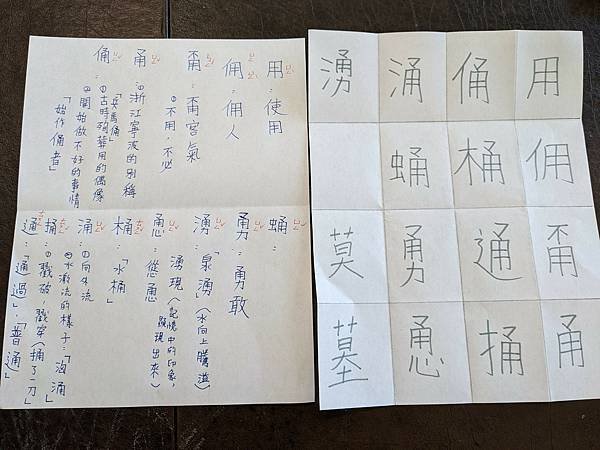 用：使用
佣：佣人
甭：甭客氣
①不用，不必
甬：①浙江寧波的別稱
俑：①古時殉葬用的偶像
「兵馬俑」
②開始做不好的事情
「始作俑者」
蛹：
勇：勇敢
湧：「泉湧」(水向上騰溢)
湧現(記憶中的印象，
顯現出來)
慂：慫慂
桶：「水桶」
涌：①向外流
②水激流的樣子：「洶涌」
捅：①戳破，戳穿(捅了一刀)
通：「通過」，「普通」
用
佣
甭
甬
俑
桶
通
捅
涌
蛹
勇
慂
湧
莫
墓